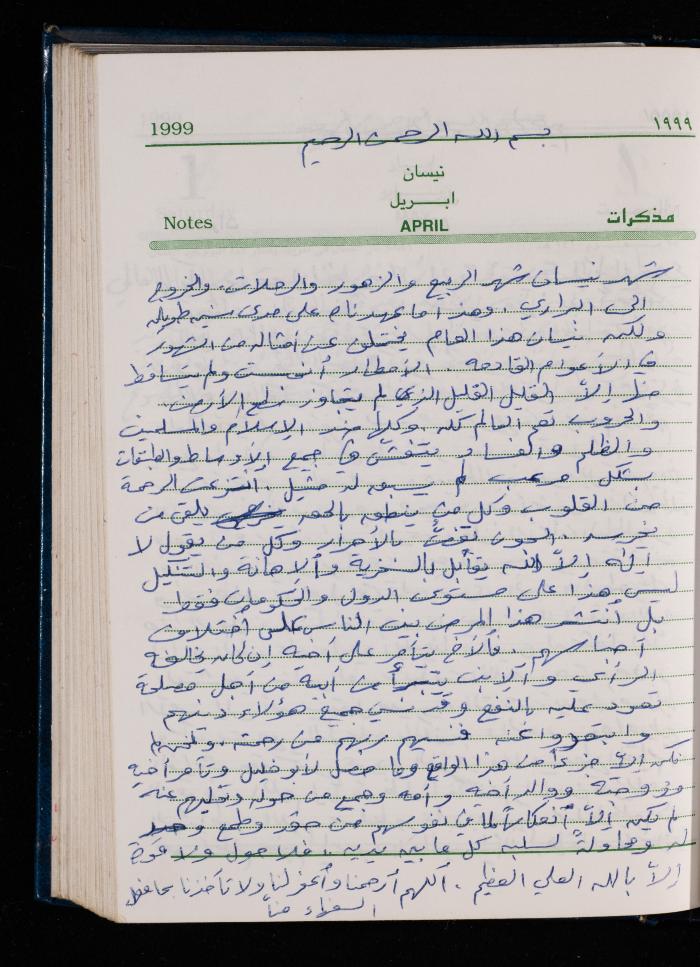 1999 ١٩٩٩
بسم الله الرحمن الرحيم
نيسان
ابريل
Notes APRIL مذكرات
شهر نيسان شهر الربيع والزهور والرحلات، والخروج
الى البراري، وهذا ما عهدناه على مدى سنين طويلة
ولكن نيسان هذا العام يختلف عن أمثاله من الشهور
في الأعوام القادمة. الأمطار أنحبست ولم يتساقط
منها إلاّ القليل القليل الذي لم يتجاوز الأرض
والحروب تعم العالم كله، وكلها ضد الإسلام والمسلمين
والظلم والفساد يتفشى في جميع الأوساط والطبقات
بشكل مرعب لم يسبق له مثيل، انتزعت الرحمة
من القلوب وكل من ينطق بالحق يلقى من
السجون تغصّ بالأحرار وكل من يقول لا
إله إلاّ الله يقابل بالسخرية والإهانة والتنكيل
ليس هذا على مستوى الدول والحكومات فقط
بل أنتشر هذا المرض بين الناس على أختلاف
أجناسهم. فالأخ يتآمر على أخيه إن كان يخالفه
الرأي والإبن يتبرأ من أبيه من أجل مصلحة
تعود عليه بالنفع وقد نسي جميع هؤلاء دينهم
وابتعدوا عنه فنسيهم ربهم من رحمته،
إلاّ جزءاً من هذا الواقع وما حصل لأبو خليل وتآمر أخيه
وزوجته ووالد أخته وأمه وجميع من حوله عنه
لم يكن إلاّ أنعكاساً لما في نفوسهم من حقد وطمع
له ومحاولة لسلبه كل ما بين يديه، فلا حول ولا قوة
إلاّ بالله العلي العظيم. أللهم أرحمنا وأعف لنا ولا تأخذنا بما فعل
السفهاء منّا